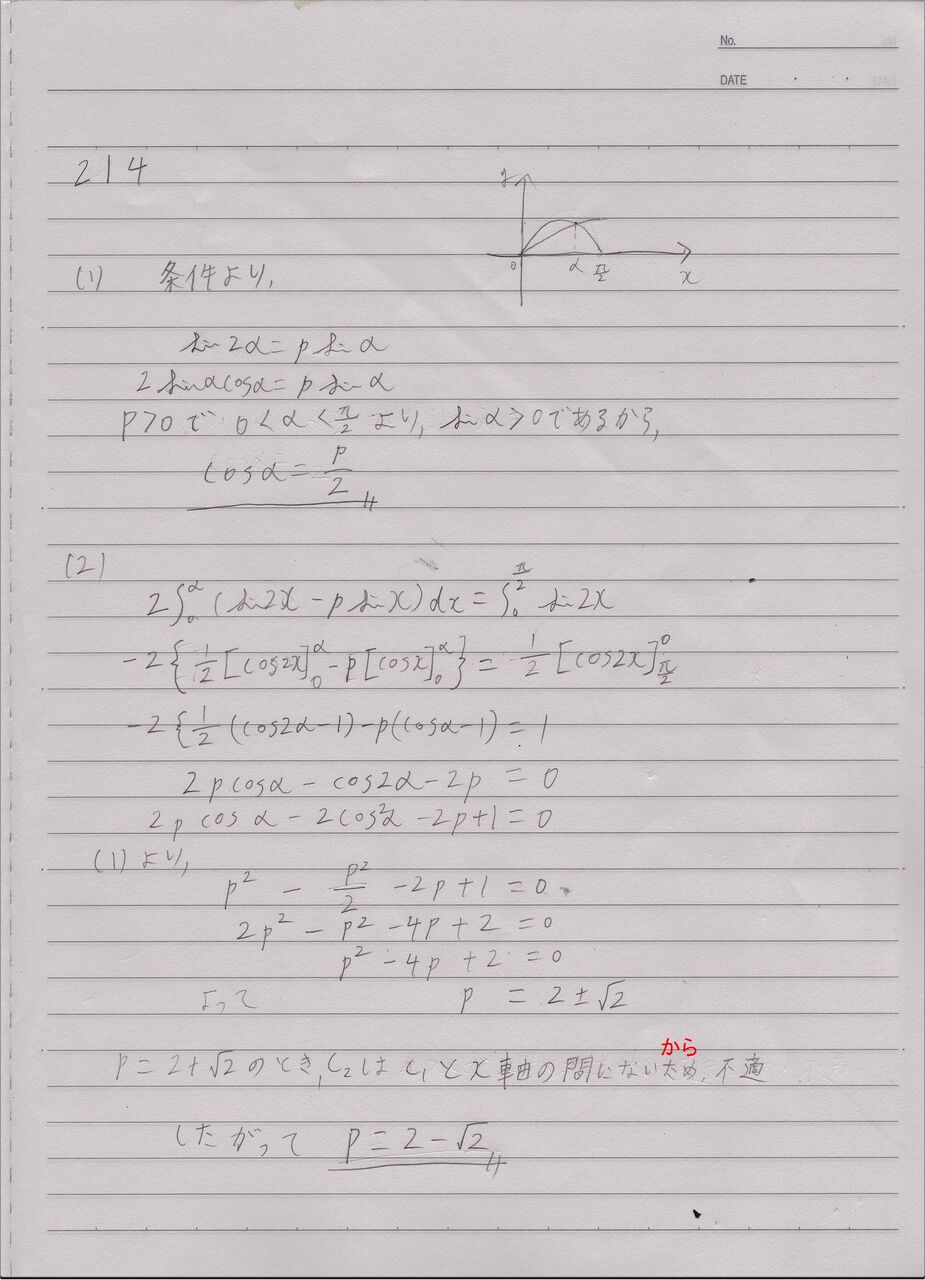 No.
DATE
214
y
0 α π/2 x
(1) 条件より,
sin2α = p sinα
2 sinα cosα = p sinα
P>0で 0<α<π/2 より, sinα>0であるから,
cosα = p/2
(2)
2∫₀^α (sin2x - p sinx) dx = ∫₀^(π/2) sin2x
-2{1/2[cos2x]₀^α - p[cosx]₀^α} = 1/2[cos2x]_(π/2)^0
-2{1/2(cos2α-1) - p(cosα-1) = 1
2p cosα - cos2α - 2p = 0
2p cosα - 2cos²α - 2p + 1 = 0
(1)より,
p² - p²/2 - 2p + 1 = 0
2p² - p² - 4p + 2 = 0
p² - 4p + 2 = 0
よって p = 2±√2
から
P = 2+√2のとき, C₂はC₁とx軸の間にないため, 不適
したがって P = 2-√2